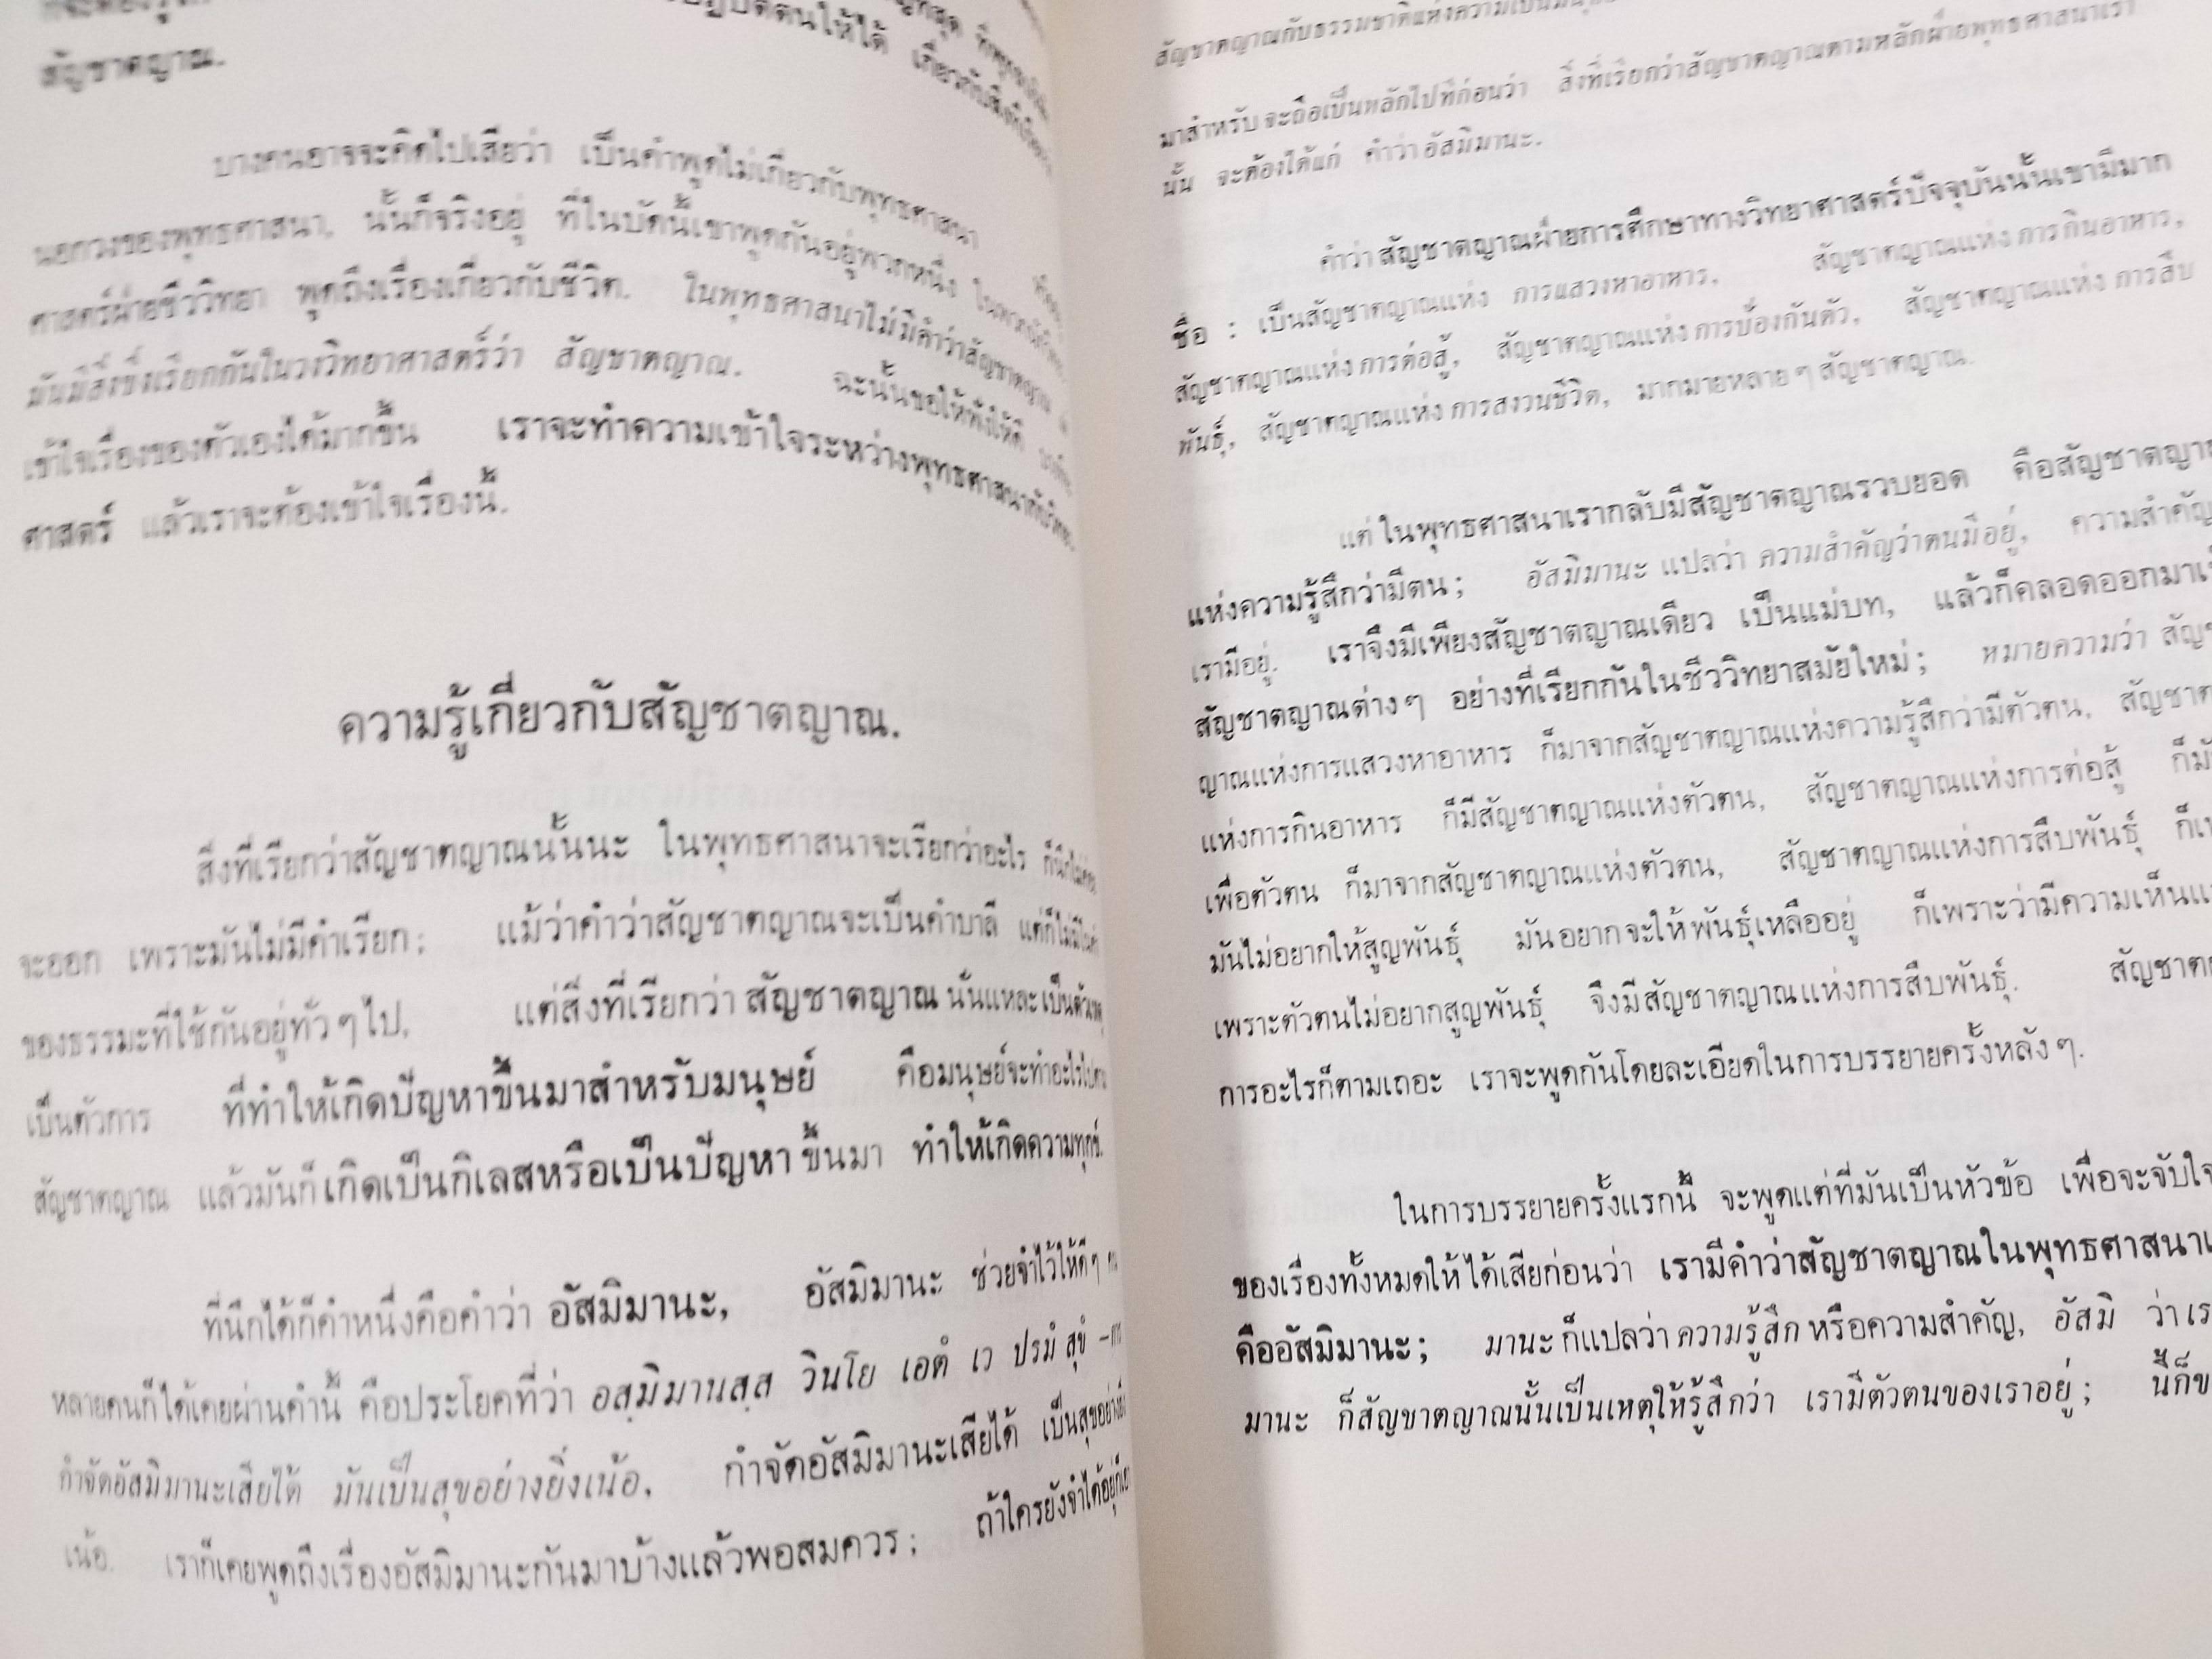 สัญชาตญาณ.
ปฏิบัติตนให้ได้ เกี่ยวกับสิ่งที่เรียกว่า
บางคนอาจจะคิดไปเสียว่า เป็นคำพูดไม่เกี่ยวกับพุทธศาสนา
นอกวงของพุทธศาสนา, นั้นก็จริงอยู่ ที่ในบัดนี้เขาพูดกันอยู่พวกหนึ่ง
ศาสตร์ฝ่ายชีววิทยา พูดถึงเรื่องเกี่ยวกับชีวิต. ในพุทธศาสนาไม่มีคำว่าสัญชาตญาณ
มันมีสิ่งซึ่งเรียกกันในวงวิทยาศาสตร์ว่า สัญชาตญาณ. ฉะนั้นขอให้ฟังให้ดี
เข้าใจเรื่องของตัวเองได้มากขึ้น เราจะทำความเข้าใจระหว่างพุทธศาสนากับวิทยา-
ศาสตร์ แล้วเราจะต้องเข้าใจเรื่องนี้.
ความรู้เกี่ยวกับสัญชาตญาณ.
สิ่งที่เรียกว่าสัญชาตญาณนั้นนะ ในพุทธศาสนาจะเรียกว่าอะไร ก็นึกไม่ค่อย
จะออก เพราะมันไม่มีคำเรียก; แม้ว่าคำว่าสัญชาตญาณจะเป็นคำบาลี แต่ก็ไม่มีในคำ
ของธรรมะที่ใช้กันอยู่ทั่วๆไป, แต่สิ่งที่เรียกว่า สัญชาตญาณ นั่นแหละเป็นตัวเหตุ
เป็นตัวการ ที่ทำให้เกิดปัญหาขึ้นมาสำหรับมนุษย์ คือมนุษย์จะทำอะไรไปตาม
สัญชาตญาณ แล้วมันก็เกิดเป็นกิเลสหรือเป็นปัญหาขึ้นมา ทำให้เกิดความทุกข์.
ที่นึกได้ก็คำหนึ่งคือคำว่า อัสมิมานะ, อัสมิมานะ ช่วยจำไว้ให้ดีๆ
หลายคนก็ได้เคยผ่านคำนี้ คือประโยคที่ว่า อสฺมิมานสฺส วินโย เอตํ เว ปรมํ สุขํ –การ
กำจัดอัสมิมานะเสียได้ มันเป็นสุขอย่างยิ่งเน้อ, กำจัดอัสมิมานะเสียได้ เป็นสุขอย่างยิ่ง
เน้อ. เราก็เคยพูดถึงเรื่องอัสมิมานะกันมาบ้างแล้วพอสมควร; ถ้าใครยังจำได้อยู่ก็
สัญชาตญาณกับธรรมชาติแห่งความเป็นมนุษย์
มาสำหรับจะถือเป็นหลักไปทีก่อนว่า สิ่งที่เรียกว่าสัญชาตญาณตามหลักฝ่ายพุทธศาสนาเรา
นั้น จะต้องได้แก่ คำว่า อัสมิมานะ.
คำว่า สัญชาตญาณฝ่ายการศึกษาทางวิทยาศาสตร์ปัจจุบันนั้นเขามีมาก
ชื่อ : เป็นสัญชาตญาณแห่ง การแสวงหาอาหาร, สัญชาตญาณแห่ง การกินอาหาร,
สัญชาตญาณแห่ง การต่อสู้, สัญชาตญาณแห่ง การป้องกันตัว, สัญชาตญาณแห่ง การสืบ
พันธุ์, สัญชาตญาณแห่ง การสงวนชีวิต, มากมายหลายๆ สัญชาตญาณ.
แต่ ในพุทธศาสนาเรากลับมีสัญชาตญาณรวบยอด คือสัญชาตญาณ
แห่งความรู้สึกว่ามีตน; อัสมิมานะ แปลว่า ความสำคัญว่าตนมีอยู่, ความสำคัญ
เรามีอยู่. เราจึงมีเพียงสัญชาตญาณเดียว เป็นแม่บท, แล้วก็คลอดออกมา
สัญชาตญาณต่างๆ อย่างที่เรียกกันในชีววิทยาสมัยใหม่; หมายความว่า
ญาณแห่งการแสวงหาอาหาร ก็มาจากสัญชาตญาณแห่งความรู้สึกว่ามีตัวตน, สัญชาต
แห่งการกินอาหาร ก็มีสัญชาตญาณแห่งตัวตน, สัญชาตญาณแห่งการต่อสู้
เพื่อตัวตน ก็มาจากสัญชาตญาณแห่งตัวตน, สัญชาตญาณแห่งการสืบพันธุ์
มันไม่อยากให้สูญพันธุ์ มันอยากจะให้พันธุ์เหลืออยู่ ก็เพราะว่ามีความเห็น
เพราะตัวตนไม่อยากสูญพันธุ์ จึงมีสัญชาตญาณแห่งการสืบพันธุ์.
การอะไรก็ตามเถอะ เราจะพูดกันโดยละเอียดในการบรรยายครั้งหลังๆ.
ในการบรรยายครั้งแรกนี้ จะพูดแต่ที่มันเป็นหัวข้อ เพื่อจะจับใจ
ของเรื่องทั้งหมดให้ได้เสียก่อนว่า เรามีคำว่าสัญชาตญาณในพุทธศาสนา
คืออัสมิมานะ; มานะ ก็แปลว่า ความรู้สึก หรือความสำคัญ, อัสมิ ว่า
มานะ ก็สัญชาตญาณนั้นเป็นเหตุให้รู้สึกว่า เรามีตัวตนของเราอยู่;